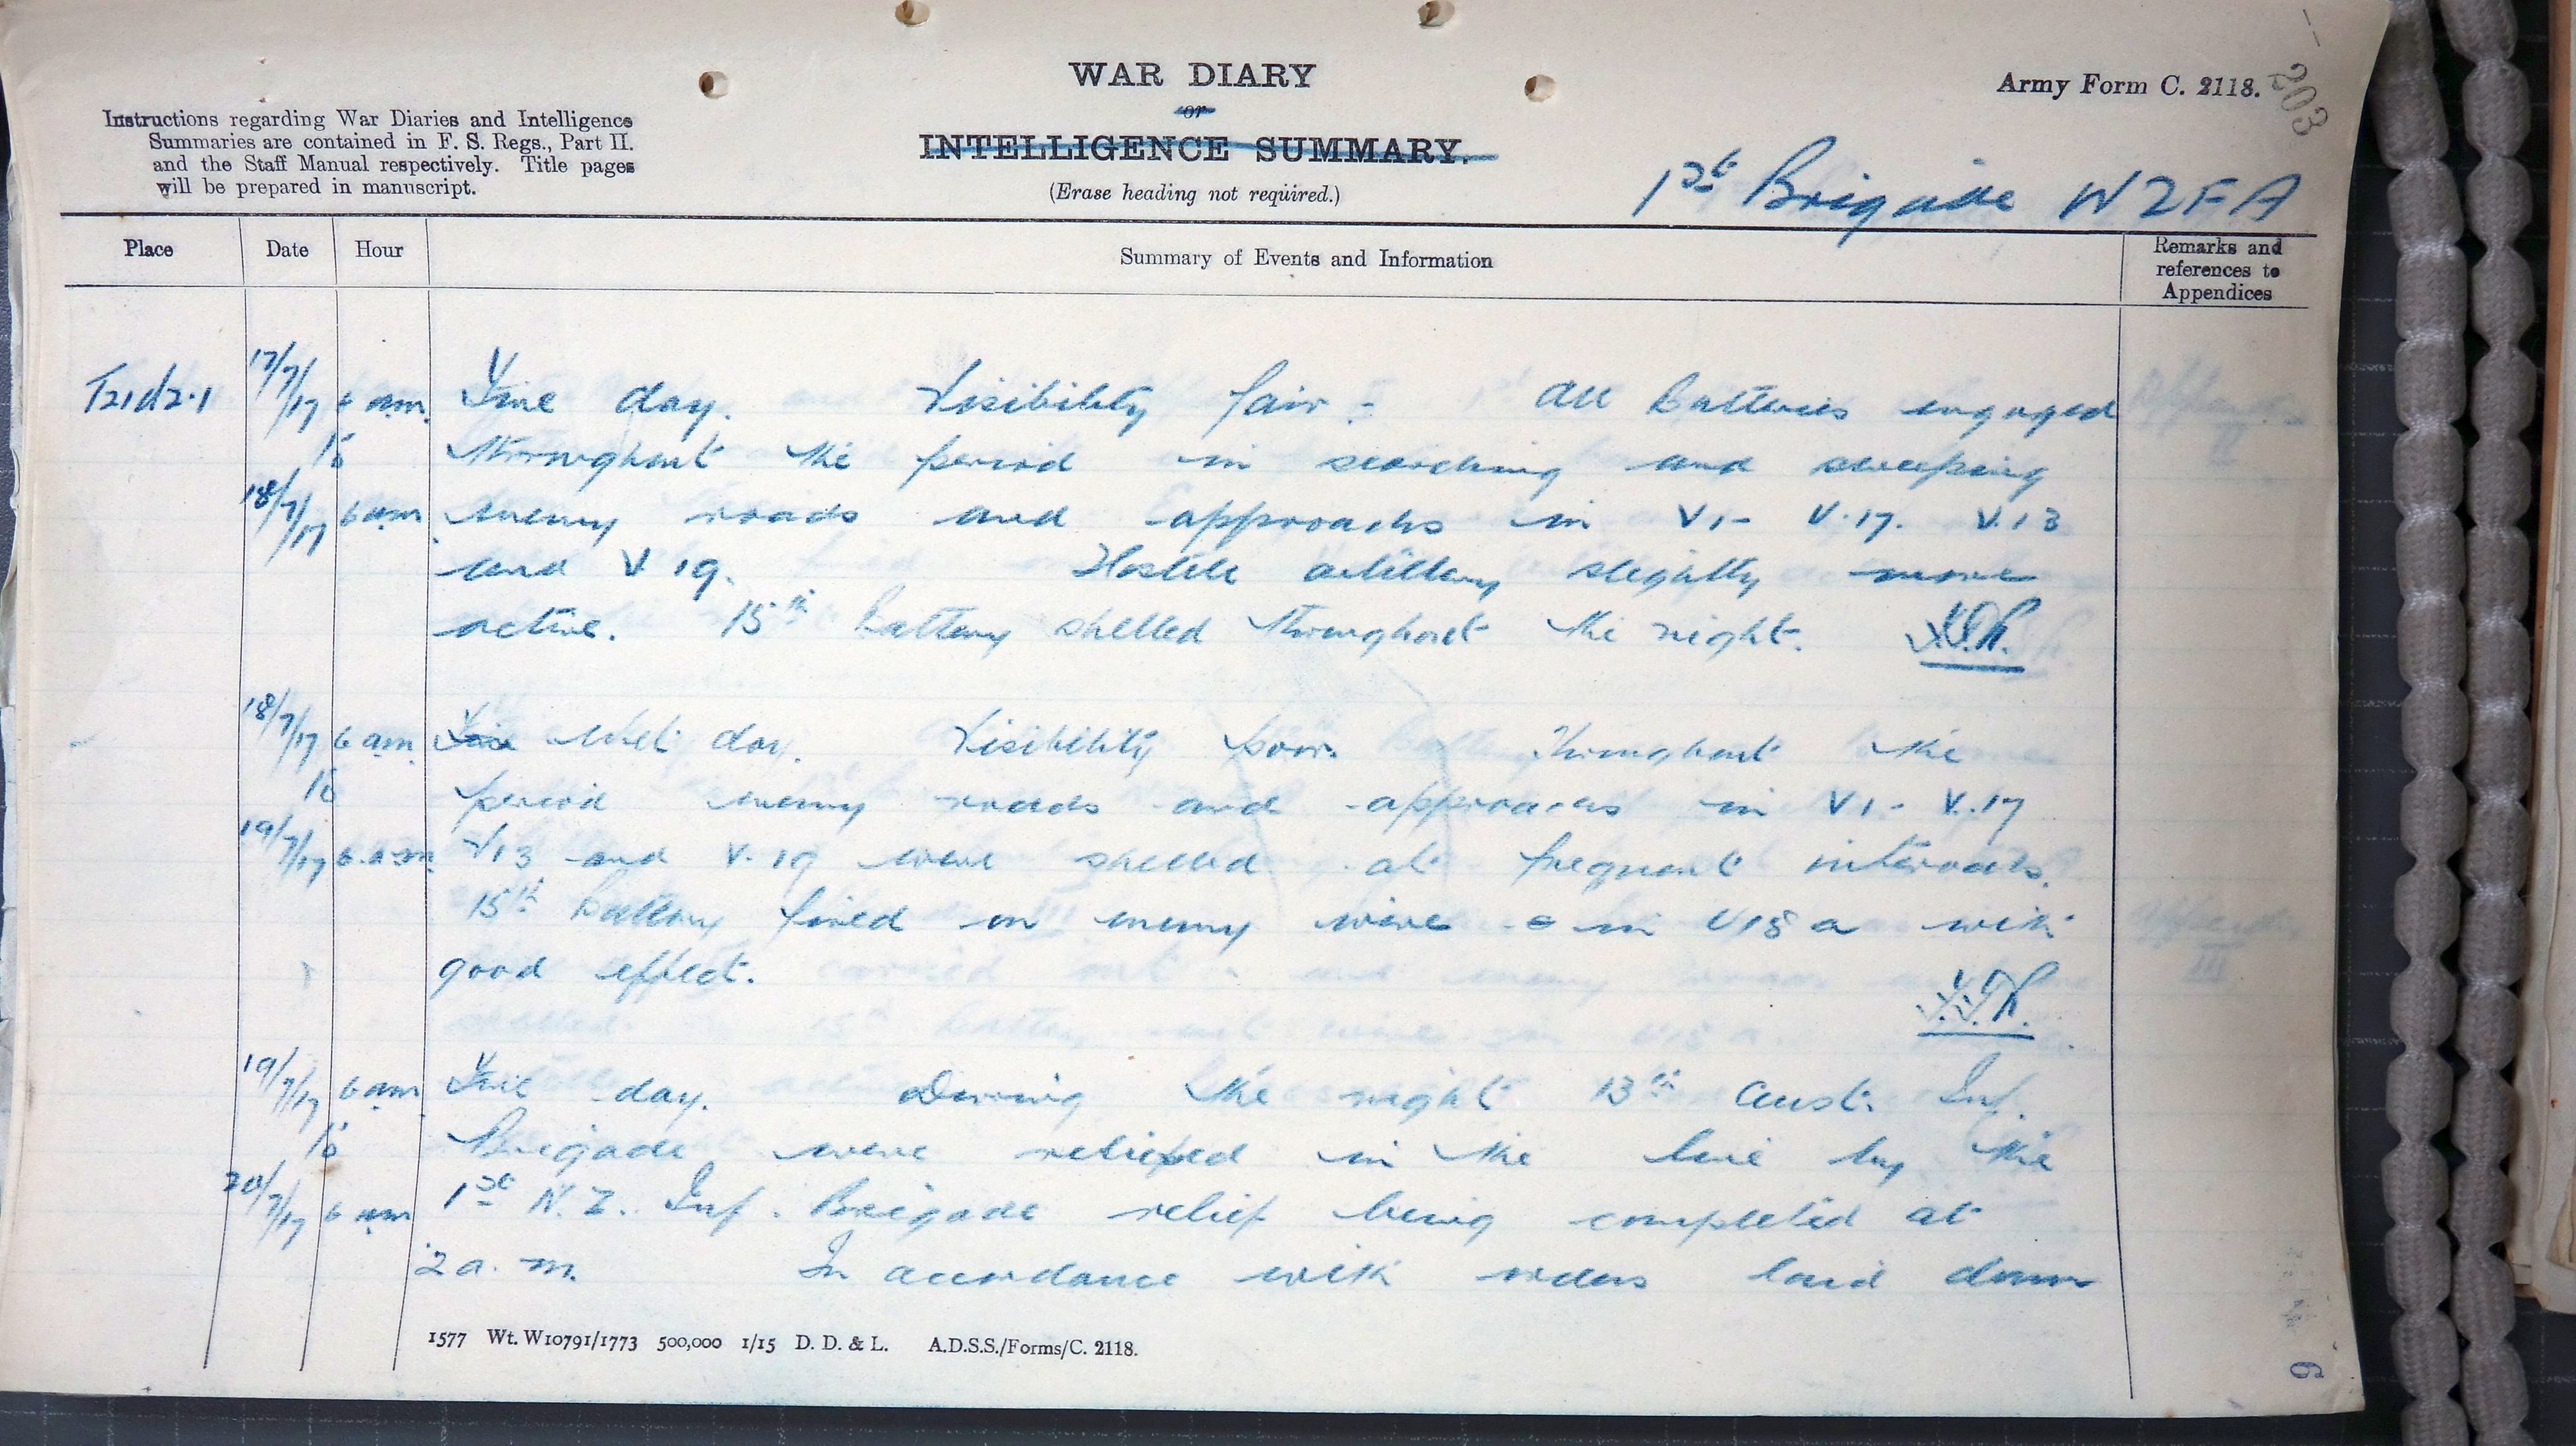 203
WAR DIARY
or
INTELLIGENCE SUMMARY.
(Erase heading not required.)
Army Form C. 2118.
Instructions regarding War Diaries and Intelligence
Summaries are contained in F. S. Regs., Part II.
and the Staff Manual respectively. Title pages
will be prepared in manuscript.
1st Brigade NZFA
Place Date Hour Summary of Events and Information Remarks and references to Appendices
T21d2.1 17/7/17 6 am. Fine day. Visibility fair. All Batteries engaged
to throughout the period in searching and sweeping
18/7/17 6 am enemy roads and approachs in V1 - V.17. V.13
and V 19. Hostile artillery slightly more
active. 15th Battery shelled throughout the night.
18/7/17 6 am. Fine Wet day. Visibility poor. Throughout the
to period enemy roads and approaches in V1 - V.17
19/7/17 6.a.m. V13 and V.19 were shelled at frequent intervals.
15th Battery fired on enemy wire in U18 a with
good effect.
19/7/17 6 am Fine day. During the night 13th Aust. Inf.
to Brigade were relieved in the line by the
20/7/17 6 am 1st N.Z. Inf. Brigade relief being completed at
2 a.m. In accordance with orders laid down
1577 Wt. W10791/1773 500,000 1/15 D. D. & L. A.D.S.S./Forms/C. 2118.